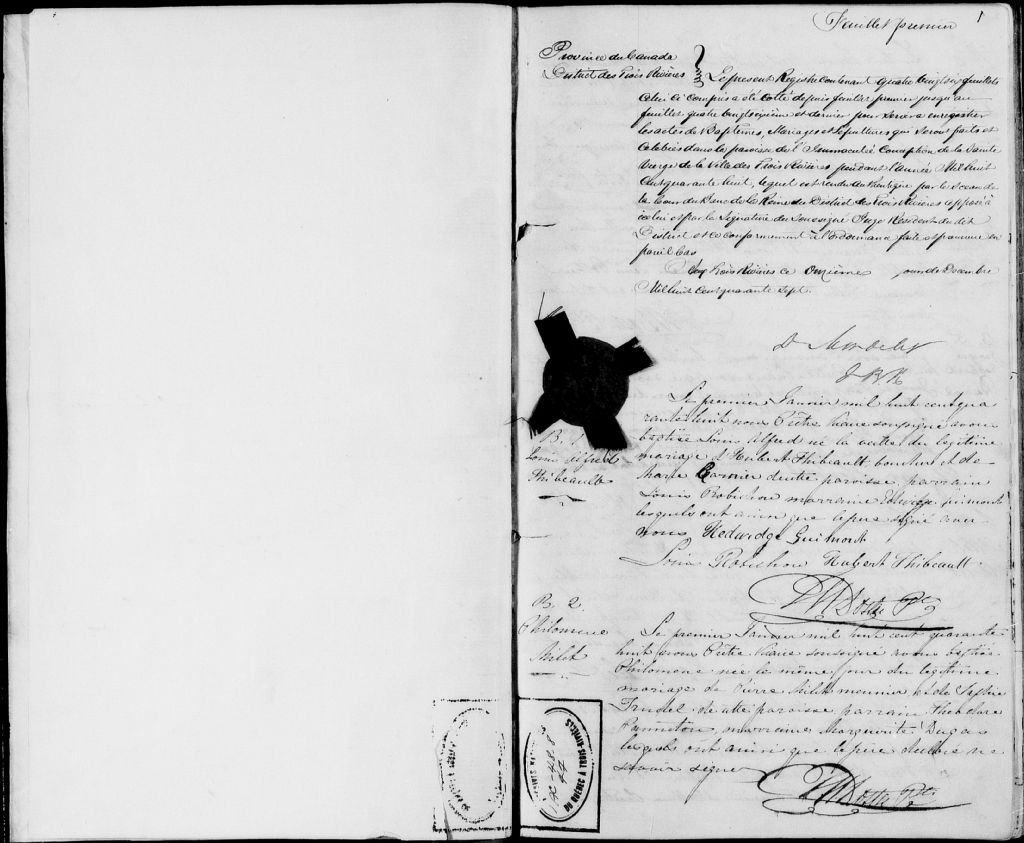 Feuillet premier
1
Province du Canada
District des Trois Rivières
Le present Registre contenant quatre vingt six feuillets
celui ci compris a été cotté depuis feuillet premier jusqu'au
feuillet quatre vingt sixième et dernier pour servir a enregistrer
les actes de Baptemes, Mariages et Sepultures qui seront faits et
Celebrés dans la paroisse de l'Immaculée Conception de la Sainte
Vierge de la Ville des Trois Rivières pendant l'Année Mil huit
Cent quarante huit, lequel est rendu authentique par le Sceau de
la Cour du Banc de la Reine du District des Trois Rivières apposé à
icelui et par la Signature du Soussigné Juge Resident du dit
District et ce conformement à l'Ordonnance faite et pourvue en
pareil Cas
Aux Trois Rivières ce Onzième jour de Decembre
Mil huit Cent quarante Sept.
D Mondelet
J B R
B. 1
Louis Alfred
Thibeault
Le premier Janvier mil huit cent qua
rante huit nous Prêtre Vicaire soussigné avons
baptisé Louis Alfred né la veille du legitime
mariage d'Hubert Thibeault boucher et de
Marie Garnier de cette paroisse, parrain
Louis Robichou marraine Edwidge guimont
lesquels ont ainsi que le pere signé avec
nous Hedwidge Guimont
Louis Robichou Hubert Thibeault
Ptre
B. 2
Philomene
Milet
Le premier Janvier mil huit cent quarante
huit nous Prêtre Vicaire soussigné avons baptisé
Philomene née le même jour du legitime
mariage de Pierre Milet meunier et de Sophie
Trudel de cette paroisse, parrain Theodore
Panneton, marraine Marguerite Dugas
lesquels ont ainsi que le pere declaré ne
savoir signer
Ptre
DU QUÉBEC À TROIS-RIVIÈRES